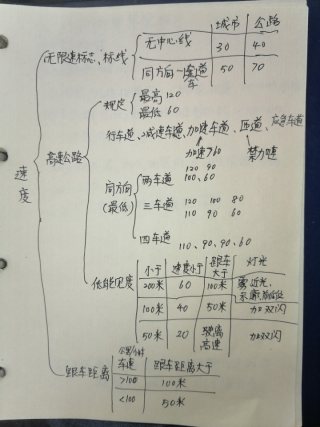 城市 公路
无限速标志、标线
无中心线 30 40
同方向一车道 50 70
规定
最高120
最低60
高速公路
行车道、减速车道、加速车道、匝道、应急车道
加速760
速度
120 90
同方向
(最低)
两车道 100、60
三车道 120 100 80
110 90 60
四车道 110、90、90、60
低能见度
小于 速度小于 跟车大于 灯光
200米 60 100米
100米 40 50米 加双闪
50米 20 驶离高速 加双闪
跟车距离
公里/小时
车速 跟车距离大于
>100 100米
<100 50米